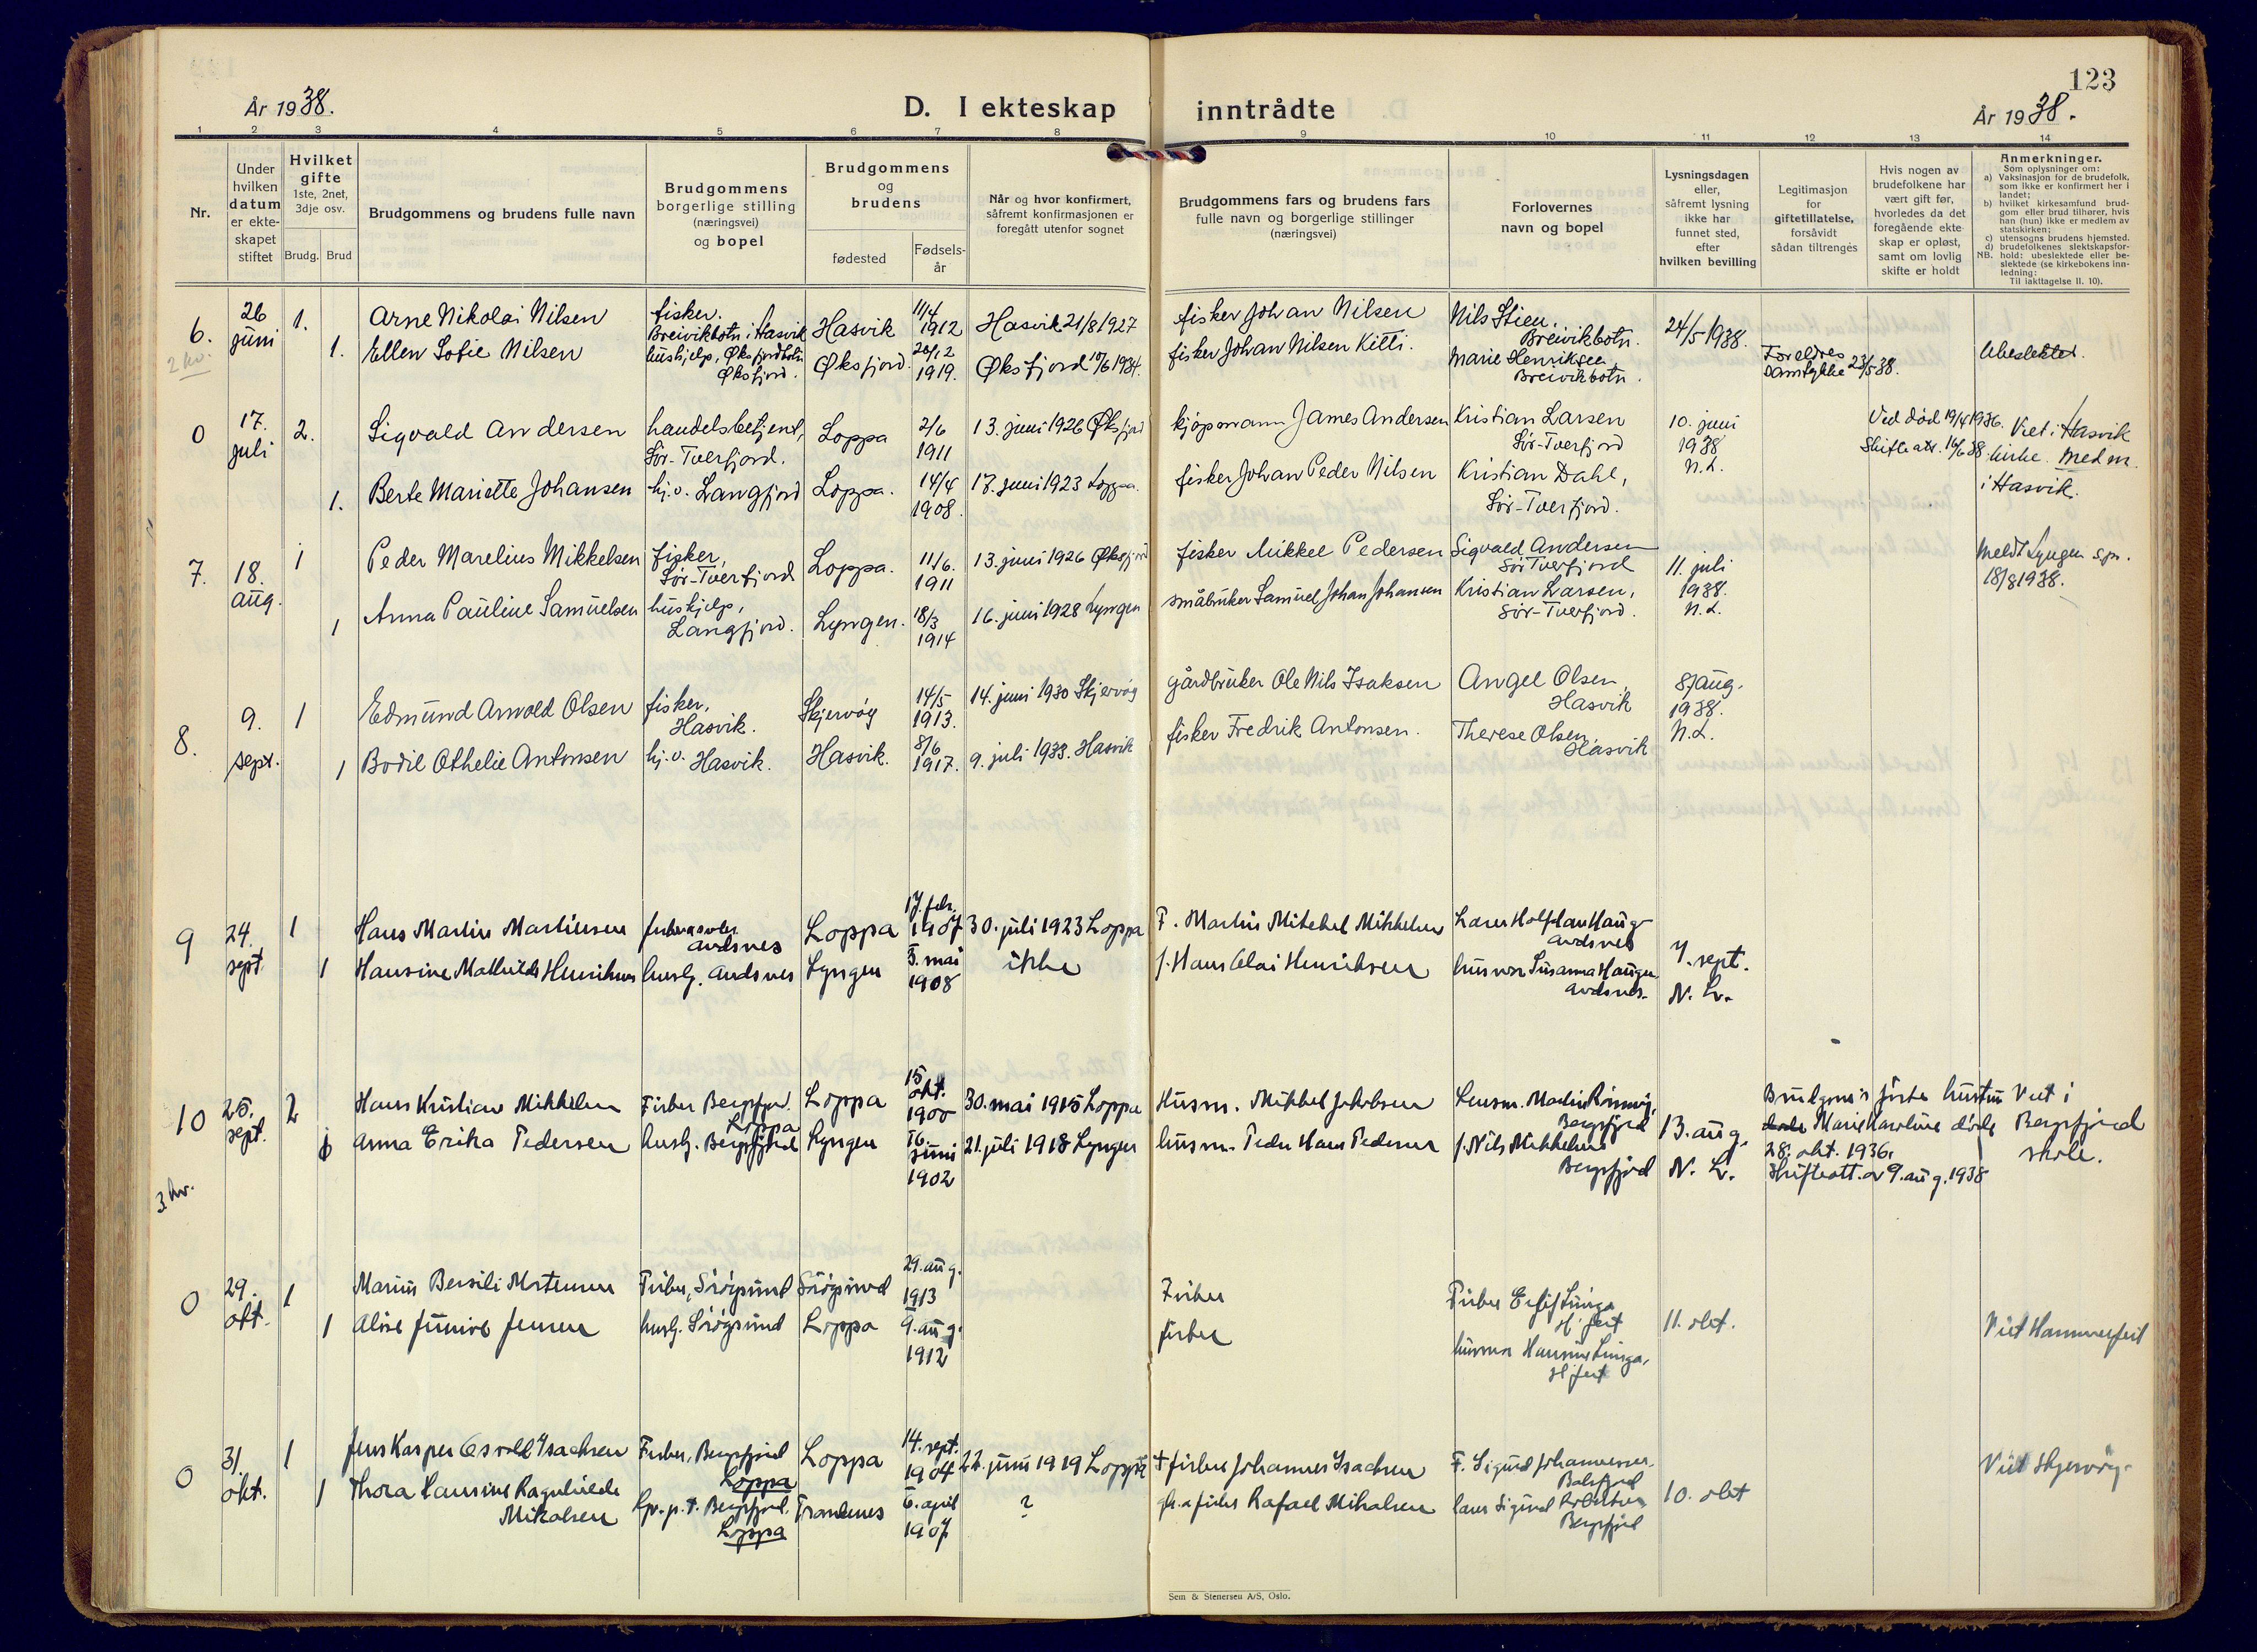 123
År 1938.
D. I ekteskap inntrådte
År 1938.
1 2 3 4 5 6 7 8 9 10 11 12 13 14
Nr.
Under hvilken datum er ekte-skapet stiftet
Hvilket gifte
1ste, 2net, 3dje osv.
Brudg. Brud
Brudgommens og brudens fulle navn
Brudgommens borgerlige stilling (næringsvei) og bopel
Brudgommens og brudens
fødested
Fødsels-år
Når og hvor konfirmert, såfremt konfirmasjonen er foregått utenfor sognet
Brudgommens fars og brudens fars fulle navn og borgerlige stillinger (næringsvei)
Forlovernes navn og bopel
Lysningsdagen eller, såfremt lysning ikke har funnet sted, efter hvilken bevilling
Legitimasjon for giftetillatelse, forsåvidt sådan tiltrenges
Hvis nogen av brudefolkene har vært gift før, hvorledes da det foregående ekte-skap er opløst, samt om lovlig skifte er holdt
Anmerkninger.
Som oplysninger om:
a) Vaksinasjon for de brudefolk, som ikke er konfirmert her i landet;
b) hvilket kirkesamfund brud-gom eller brud tilhører, hvis han (hun) ikke er medlem av statskirken;
c) utensogns brudens hjemsted.
d) brudefolkenes slektskapsfor-
NB. hold: ubeslektede eller be-slektede (se kirkebokens inn-ledning:
Til iakttagelse II. 10).
6. 26 juni 1. Arne Nikolai Nilsen fisker. Breivikbotn i Hasvik Hasvik 11/4 1912 Hasvik 21/8 1927 fisker Johan Nilsen Nils Stien, Breivikbotn. 24/5 1938.
2 kv. 1. Ellen Sofie Nilsen hushjelp, Øksfjordbotn Øksfjord. Øksfjord. 20/12 1919. Øksfjord 17/6 1934. fisker Johan Nilsen Kitti. Marie Henriksen, Breivikbotn. Foreldres samtykke 23/5 38. Ubeslektet.
0 17. juli 2. Sigvald Andersen handelsbetjent, Sør-Tverfjord. Loppa 2/6 1911 13. juni 1926 Øksfjord kjøpmann James Andersen Kristian Larsen Sør-Tverfjord 10. juni 1938 N.L. Ved død 19/4 1936. Skifteatt. 16/6 38. Viet i Hasvik kirke. Med m. i Hasvik.
1. Berte Mariette Johansen hj.v. Langfjord Loppa. 14/4 1908. 17. juni 1923 Loppa. fisker Johan Peder Nilsen Kristian Dahl, Sør-Tverfjord.
7. 18. aug. 1 Peder Marelius Mikkelsen fisker, Sør-Tverfjord Loppa. 11/6. 1911 13. juni 1926 Øksfjord fisker Mikkel Pedersen Sigvald Andersen Sør Tverfjord 11. juli 1938. N.L. Meldt Lyngen spr. 18/8 1938.
1 Anna Pauline Samuelsen hushjelp, Langfjord. Lyngen. 18/3 1914 16. juni 1928 Lyngen småbruker Samuel Johan Johansen Kristian Larsen, Sør-Tverfjord.
8. 9. sept. 1 Edmund Arnold Olsen fisker, Hasvik. Skjervøy 14/5 1913. 14. juni 1930 Skjervøy gårdbruker Ole Nils Isaksen Angel Olsen, Hasvik 8/aug. 1938. N.L.
1 Bodil Othelie Antonsen hj.v. Hasvik. Hasvik. 8/6 1917. 9. juli 1933. Hasvik fisker Fredrik Antonsen. Therese Olsen, Hasvik
9 24. sept. 1 Hans Martin Martinsen Andsnes Loppa 17. febr. 1907 30. juli 1923 Loppa F. Martin Mikkel Mikkelsen Halfdan Haug Andsnes 7. sept. N. L.
1 Hansine Mathilde Henriksen hush. Andsnes Lyngen 3. mai 1908 ikke f. Hans Olai Henriksen husmor Susanna Haugen Andsnes.
10 25. sept. 2 Hans Kristian Mikkelsen Fisker Bergsfjord Loppa Loppa 15 okt. 1900 30. mai 1915 Loppa Husm. Mikkel Jakobsen Lensm. Bergsfjord 13. aug. N. L. Brudgom's første hustru Marie Karoline døde 28. okt. 1936. Skifteatt. av 9. aug. 1938 Viet i Bergsfjord skole.
3 kv. 1 Anna Erika Pedersen hush. Bergsfjord Lyngen 16. juni 1902 21. juli 1918 Lyngen husm. Peder Hans Pedersen f. Nils Mikkelsen Bergsfjord
0 29. okt. 1 Marius Bersili Mortensen Fisker, Sørøysund Sørøysund 29. aug. 1913 Fisker Fisker H.fest 11. okt. Viet Hammerfest
1 Jensen hush. Sørøysund Loppa 9. aug. 1912 fisker husmor H.fest
0 31. okt. 1 Jens Kasper Osvald Isachsen Fisker, Bergsfjord Loppa Loppa 14. sept. 1904 22. juni 1919 Loppa + fisker Johannes Isachsen F. Sigurd Johannessen. 10. okt Viet Skjervøy.
1 Thora Hansine Ragnhilde Mikalsen p.t. Bergsfjord. Loppa Trondenes 6. april 1907 ? fisker Rafael Mikalsen Bergsfjord
Sem & Stenersen A/S, Oslo.